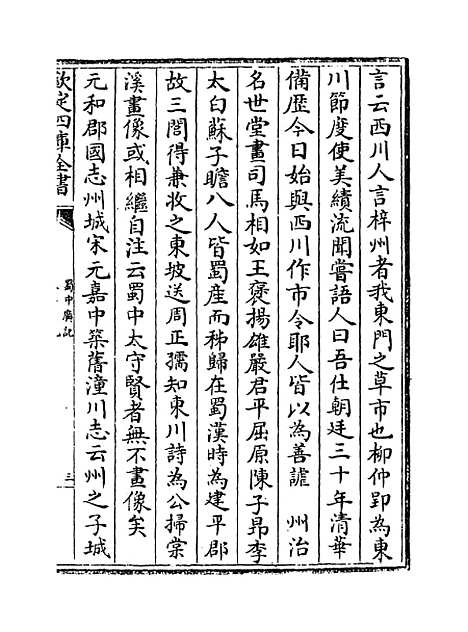 言云西川人言梓州者我東門之草市也柳仲郢為東
川節度使美績流聞嘗語人曰吾仕朝廷三十年清華
備歴今日始與西川作市令耶人皆以為善謔　州治
名世堂畫司馬相如王襃揚雄嚴君平屈原陳子昂李
太白蘇子瞻八人皆蜀産而秭歸在蜀漢時為建平郡
故三閭得兼收之東坡送周正孺知東川詩為公掃棠
溪畫像或相繼自注云蜀中太守賢者無不畫像矣
元和郡國志州城宋元嘉中築舊潼川志云州之子城
欽定四庫全書
蜀中廣記
三